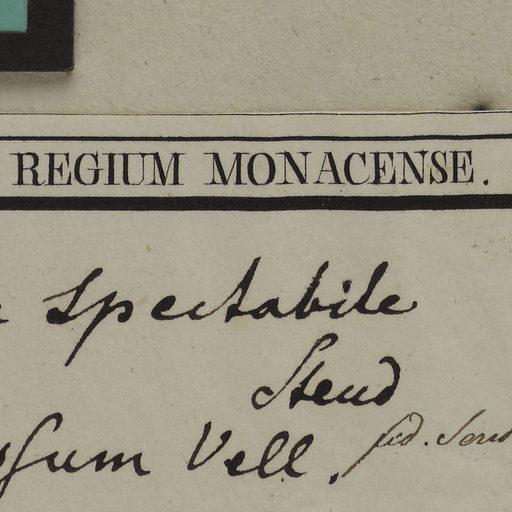 REGIUM MONACENSE.
spectabile
Steud
Vell.